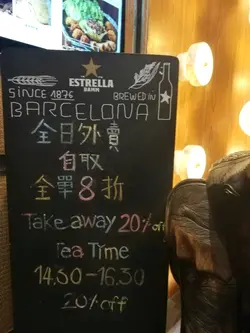 ESTRELLA
DAMM
SINCE 1876 BREWED IN
BARCELONA
全日外賣
自取
全單8折
Take away 20% off
Tea Time
14.30-16.30
20% off